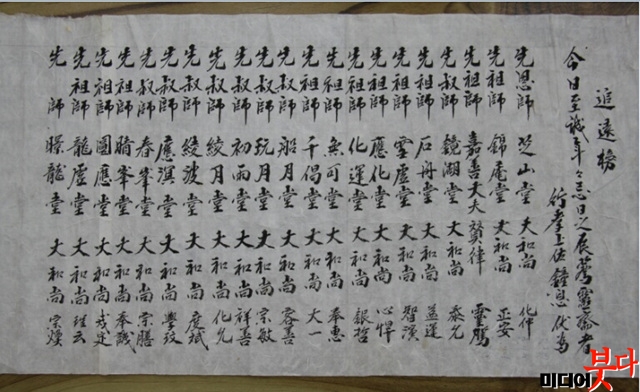 追遠榜
今日至誠年々忌日之辰薦靈齋者
行孝上佐鍾恩伏爲
先恩師 芝山堂 大和尚 化仲
先祖師 錦庵堂 大和尚 正安
先祖師 嘉善大夫 贊律 靈
先叔師 鏡湖堂 大和尚 泰允
先祖師 石舟堂 大和尚 益運
先祖師 雲虛堂 大和尚 智演
先祖師 應化堂 大和尚 心悍
先祖師 化運堂 大和尚 銀哲
先祖師 無可堂 大和尚 奉惠
先祖師 千偈堂 大和尚 大一
先叔師 船月堂 大和尚 容善
先叔師 玩月堂 大和尚 宗敏
先叔師 初雨堂 大和尚 祥善
先叔師 綾波堂 大和尚 化允
先叔師 皎月堂 大和尚 度斌
先叔師 應溟堂 大和尚 學玟
先叔師 春峯堂 大和尚 宗膳
先祖師 晴峯堂 大和尚 奉誠
先祖師 圓應堂 大和尚
先祖師 龍虛堂 大和尚 理云
先 朦龍堂 大和尚 宗煥
미디어붓다